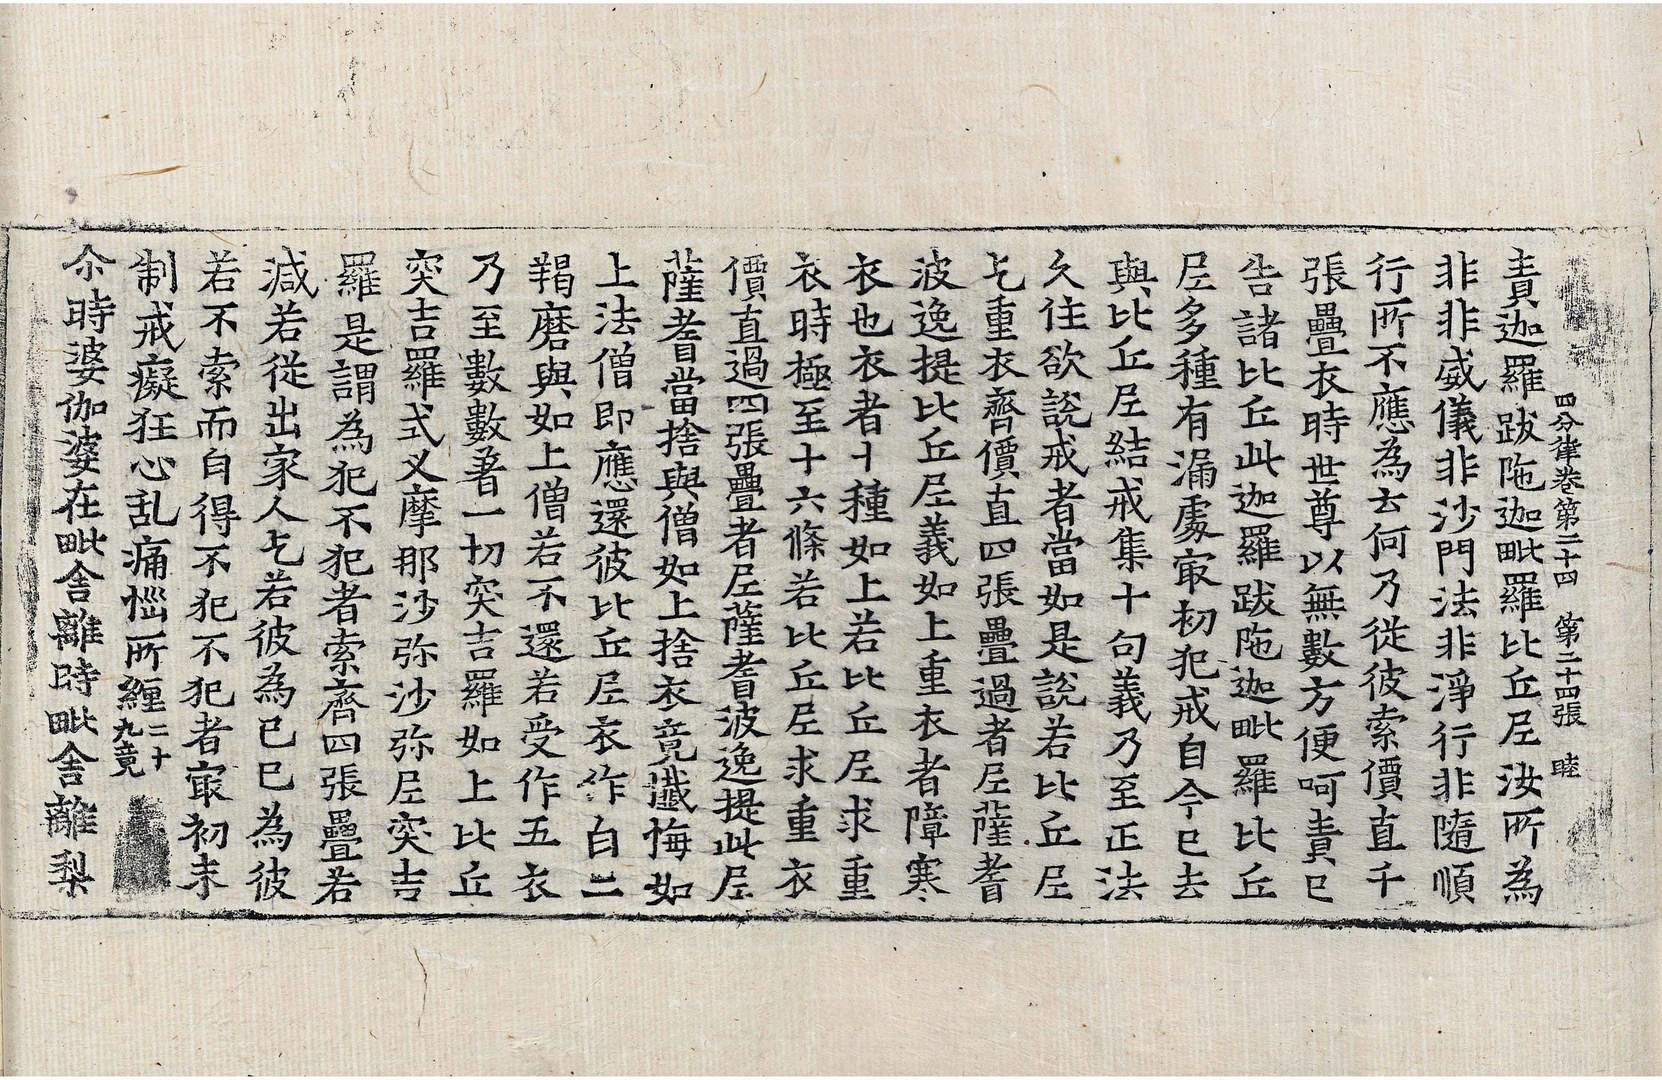 四分律卷第二十四　第二十四張　睦
責迦羅跋陁迦毗羅比丘尼汝所為
非非威儀非沙門法非淨行非隨順
行所不應為云何乃從彼索價直千
張疊衣時世尊以無數方便呵責已
告諸比丘此迦羅跋陁迦毗羅比丘
尼多種有漏處㝡初犯戒自今已去
與比丘尼結戒集十句義乃至正法
久住欲說戒者當如是說若比丘尼
乞重衣齊價直四張疊過者尼薩耆
波逸提比丘尼義如上重衣者障寒
衣也衣者十種如上若比丘尼求重
衣時極至十六條若比丘尼求重衣
價直過四張疊者尼薩耆波逸提此尼
薩耆當捨與僧如上捨衣竟懺悔如
上法僧即應還彼比丘尼衣作白二
羯磨與如上僧若不還若受作五衣
乃至數數著一切突吉羅如上比丘
突吉羅式叉摩那沙弥沙弥尼突吉
羅是謂為犯不犯者索齊四張疊若
減若從出家人乞若彼為已已為彼
若不索而自得不犯不犯者㝡初未
制戒癡狂心乱痛惱所纏二十九竟
尒時婆伽婆在毗舍離時毗舍離梨